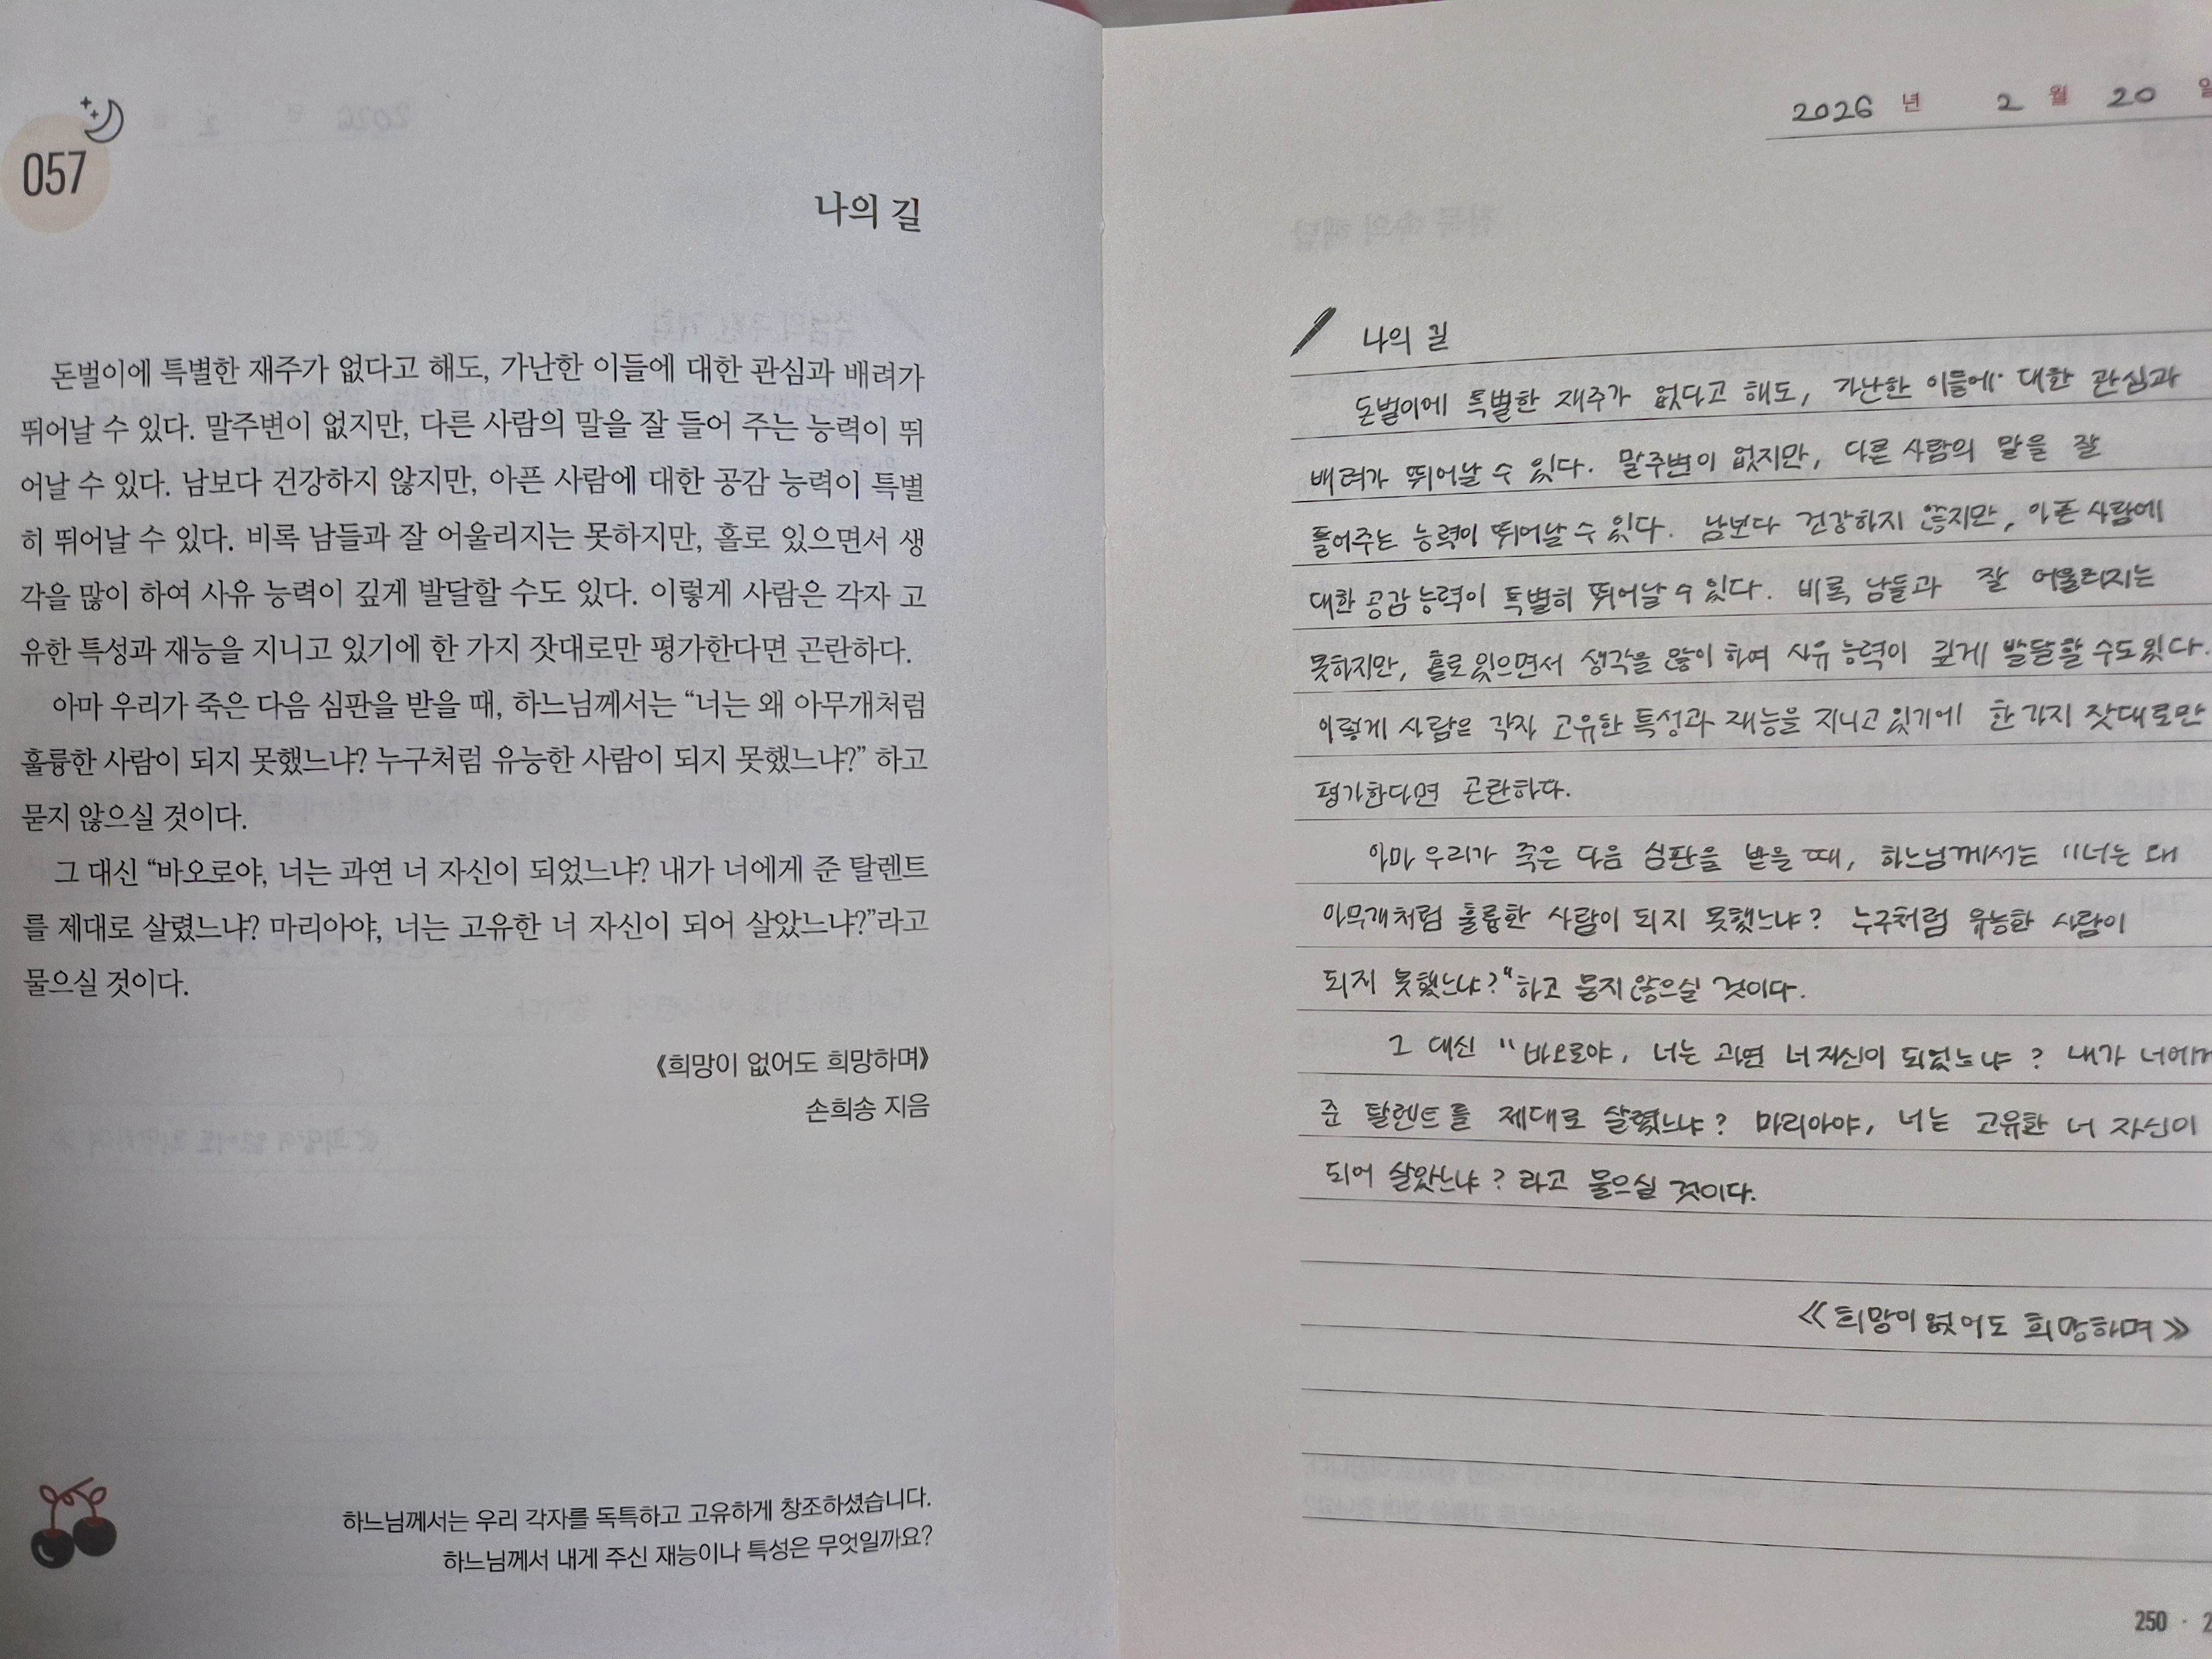 057
나의 길
돈벌이에 특별한 재주가 없다고 해도, 가난한 이들에 대한 관심과 배려가
뛰어날 수 있다. 말주변이 없지만, 다른 사람의 말을 잘 들어 주는 능력이 뛰
어날 수 있다. 남보다 건강하지 않지만, 아픈 사람에 대한 공감 능력이 특별
히 뛰어날 수 있다. 비록 남들과 잘 어울리지는 못하지만, 홀로 있으면서 생
각을 많이 하여 사유 능력이 깊게 발달할 수도 있다. 이렇게 사람은 각자 고
유한 특성과 재능을 지니고 있기에 한 가지 잣대로만 평가한다면 곤란하다.
아마 우리가 죽은 다음 심판을 받을 때, 하느님께서는 “너는 왜 아무개처럼
훌륭한 사람이 되지 못했느냐? 누구처럼 유능한 사람이 되지 못했느냐?” 하고
묻지 않으실 것이다.
그 대신 “바오로야, 너는 과연 너 자신이 되었느냐? 내가 너에게 준 탈렌트
를 제대로 살렸느냐? 마리아야, 너는 고유한 너 자신이 되어 살았느냐?”라고
물으실 것이다.
《희망이 없어도 희망하며》
손희송 지음
하느님께서는 우리 각자를 독특하고 고유하게 창조하셨습니다.
하느님께서 내게 주신 재능이나 특성은 무엇일까요?
2026 년 2 월 20 일
나의 길
돈벌이에 특별한 재주가 없다고 해도, 가난한 이들에 대한 관심과
배려가 뛰어날 수 있다. 말주변이 없지만, 다른 사람의 말을 잘
들어주는 능력이 뛰어날 수 있다. 남보다 건강하지 않지만, 아픈 사람에
대한 공감 능력이 특별히 뛰어날 수 있다. 비록 남들과 잘 어울리지는
못하지만, 홀로 있으면서 생각을 많이 하여 사유 능력이 깊게 발달할 수도 있다.
이렇게 사람은 각자 고유한 특성과 재능을 지니고 있기에 한 가지 잣대로만
평가한다면 곤란하다.
아마 우리가 죽은 다음 심판을 받을 때, 하느님께서는 "너는 왜
아무개처럼 훌륭한 사람이 되지 못했느냐? 누구처럼 유능한 사람이
되지 못했느냐?" 하고 묻지 않으실 것이다.
그 대신 "바오로야, 너는 과연 너 자신이 되었느냐? 내가 너에게
준 탈렌트를 제대로 살렸느냐? 마리아야, 너는 고유한 너 자신이
되어 살았느냐? 라고 물으실 것이다.
《희망이 없어도 희망하며》
250 · 2